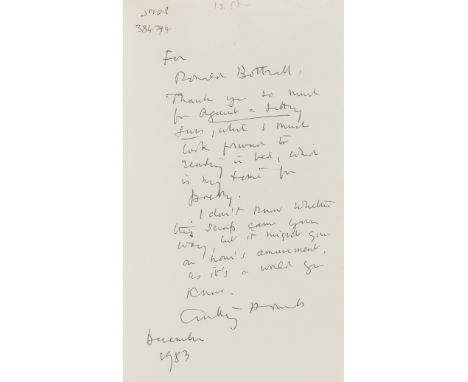 384794
For
Ronald Bottrall,
Thank you so much
for Against a Setting
Sun, which I much
look forward to
reading in bed, which
is my time for
poetry.
I don't know whether
this scrap came your
way but it might give
an hour's amusement,
as it's a world you
know.
December
1983